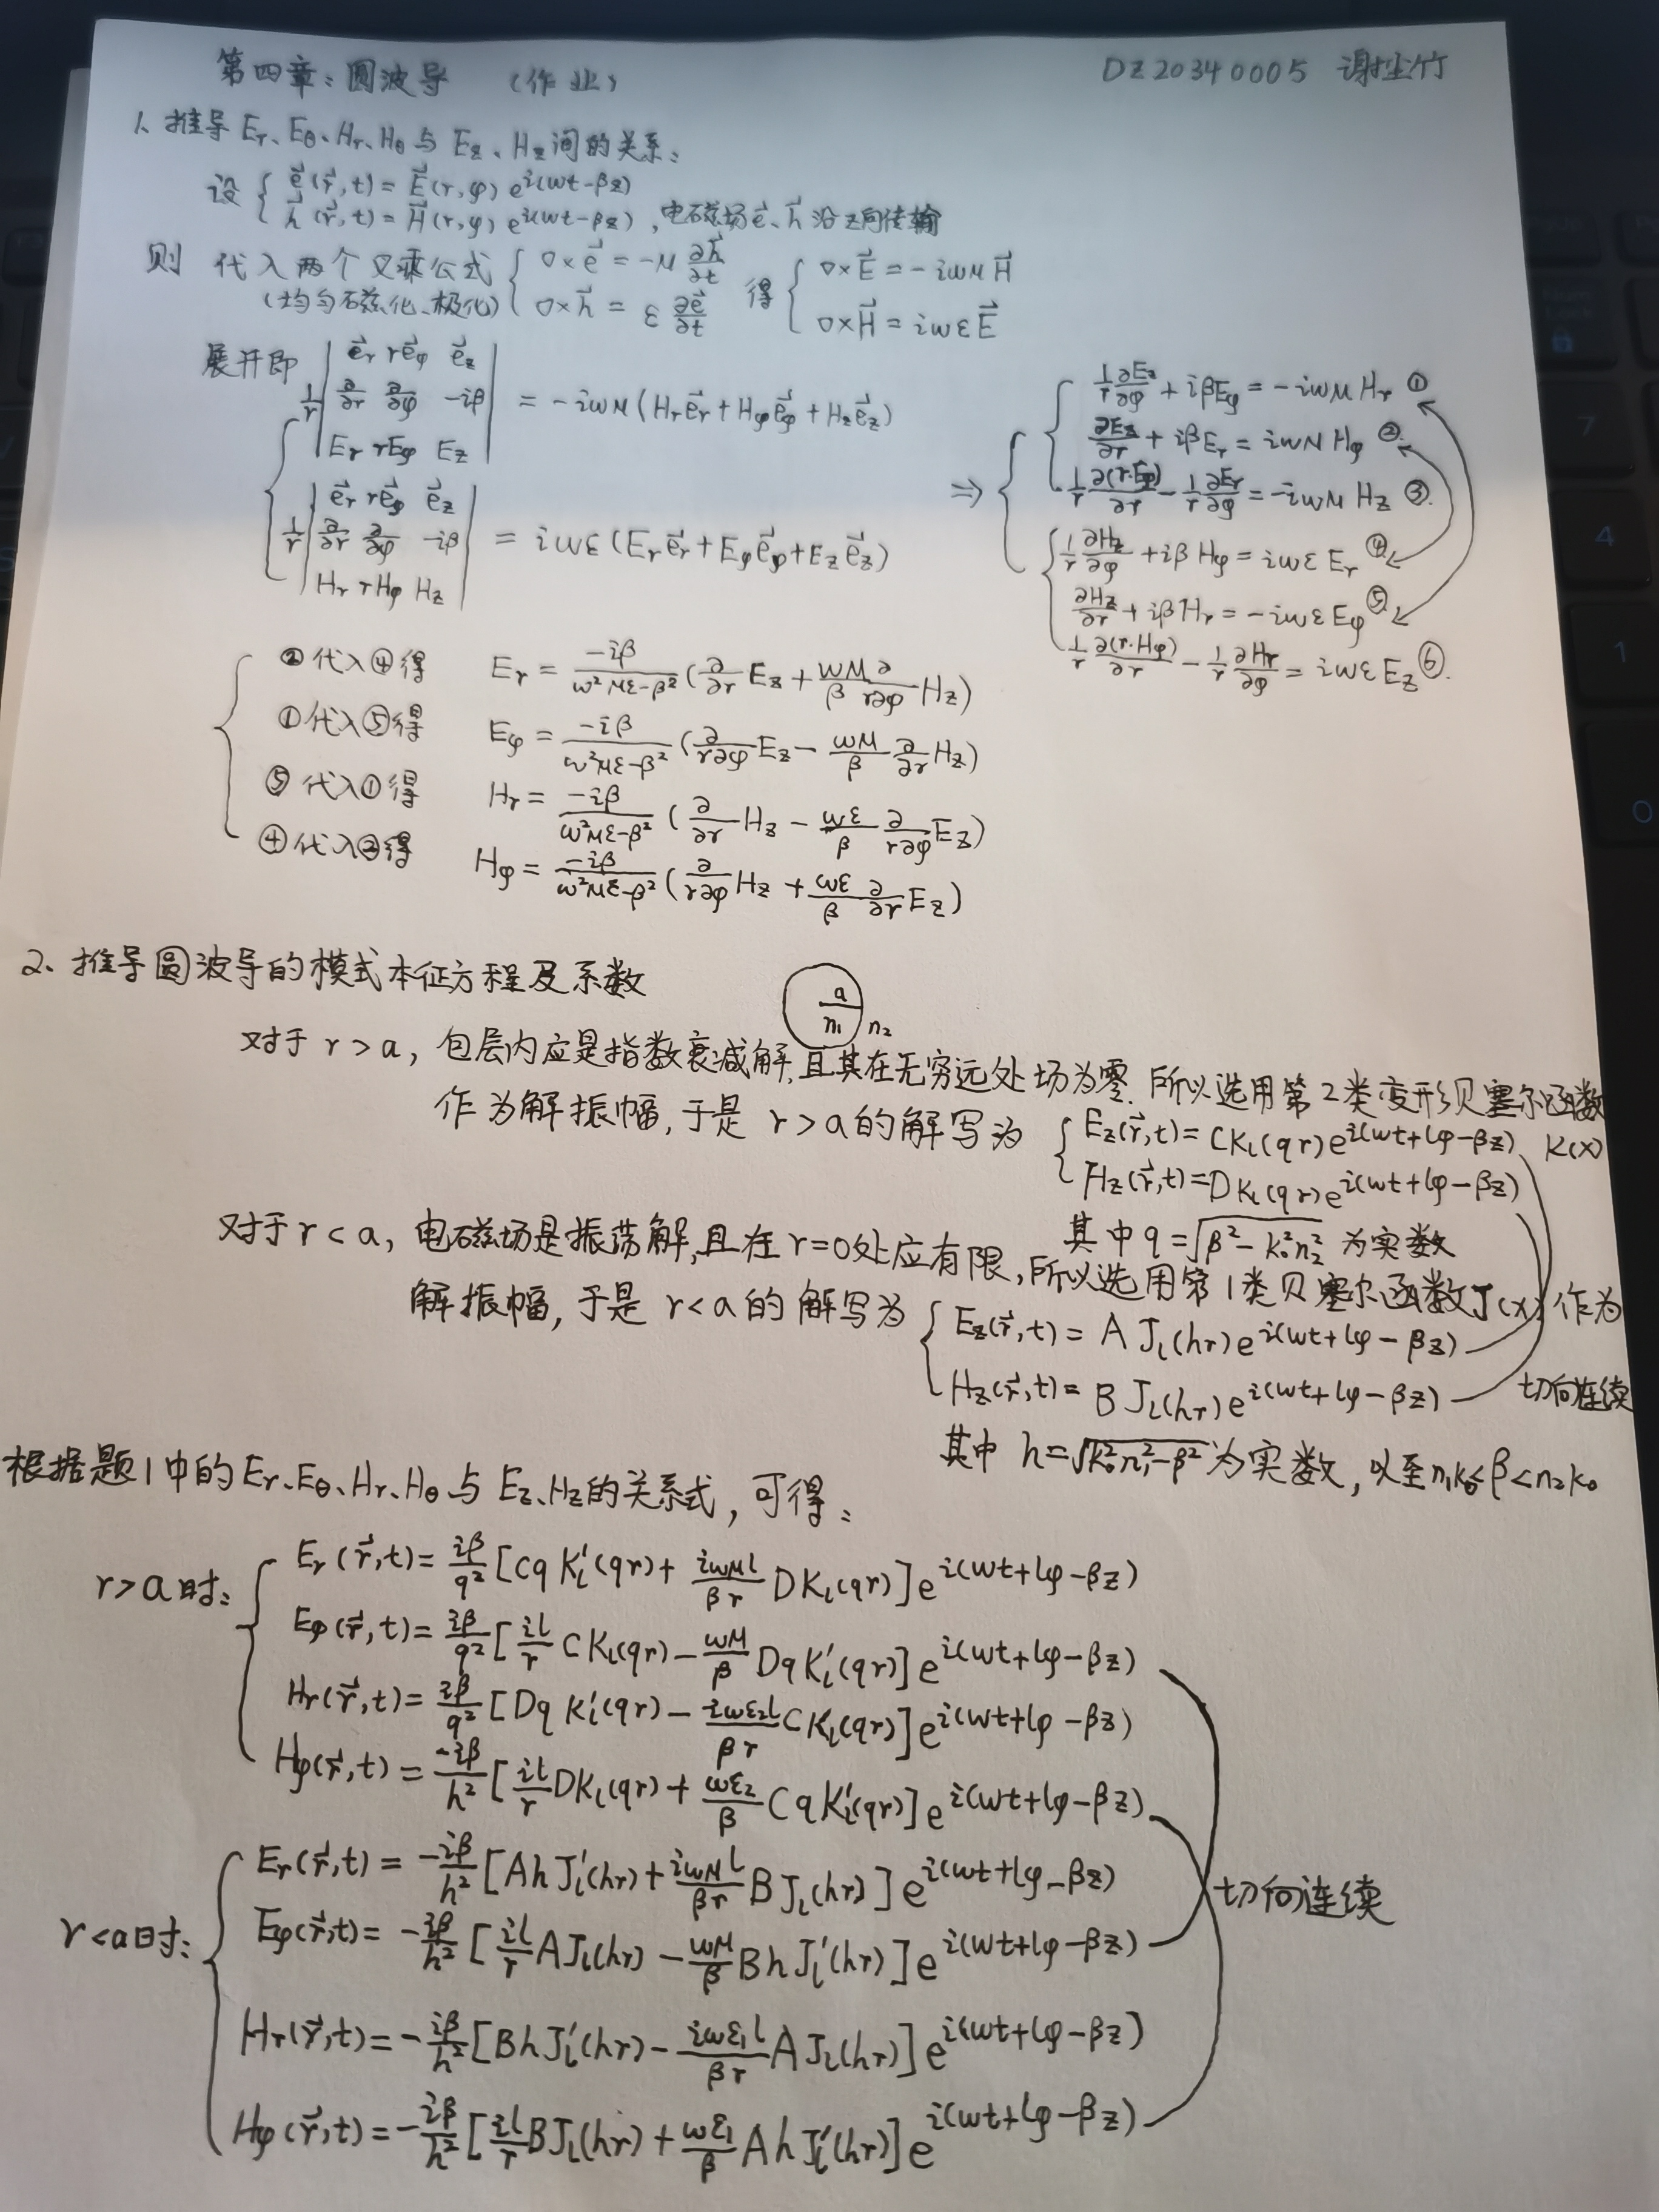 第四章：圆波导 （作业） DZ20340005 谢尘竹
1、推导 Er、Eθ、Hr、Hθ 与 Ez、Hz 间的关系：
设 { e⃗(r⃗,t) = E⃗(r,φ) e^{i(wt-βz)}
h⃗(r⃗,t) = H⃗(r,φ) e^{i(wt-βz)} , 电磁场 e⃗、h⃗ 沿 z 向传输
则 代入两个叉乘公式 { ∇×e⃗ = -μ ∂h⃗/∂t 得 { ∇×E⃗ = -iwμH⃗
(均匀磁化、极化) ∇×h⃗ = ε ∂e⃗/∂t ∇×H⃗ = iwεE⃗
展开即 1/r | e⃗r re⃗φ e⃗z ; ∂/∂r ∂/∂φ -iβ ; Er rEφ Ez | = -iwμ(Hre⃗r + Hφe⃗φ + Hze⃗z)
1/r | e⃗r re⃗φ e⃗z ; ∂/∂r ∂/∂φ -iβ ; Hr rHφ Hz | = iwε(Ere⃗r + Eφe⃗φ + Eze⃗z)
⇒ { 1/r ∂Ez/∂φ + iβEφ = -iwμHr ①
∂Ez/∂r + iβEr = iwμHφ ②
1/r ∂(r·Eφ)/∂r - 1/r ∂Er/∂φ = -iwμHz ③.
1/r ∂Hz/∂φ + iβHφ = iwεEr ④
∂Hz/∂r + iβHr = -iwεEφ ⑤
1/r ∂(r·Hφ)/∂r - 1/r ∂Hr/∂φ = iwεEz ⑥.
②代入④得 Er = -iβ/(w²με-β²) (∂/∂r Ez + wμ/β ∂/r∂φ Hz)
①代入⑤得 Eφ = -iβ/(w²με-β²) (∂/r∂φ Ez - wμ/β ∂/∂r Hz)
⑤代入①得 Hr = -iβ/(w²με-β²) (∂/∂r Hz - wε/β ∂/r∂φ Ez)
④代入②得 Hφ = -iβ/(w²με-β²) (∂/r∂φ Hz + wε/β ∂/∂r Ez)
2、推导圆波导的模式本征方程及系数
a
n₁ n₂
对于 r > a, 包层内应是指数衰减解,且其在无穷远处场为零. 所以选用第2类变形贝塞尔函数
作为解振幅, 于是 r > a 的解写为 { Ez(r⃗,t) = CKl(qr)e^{i(wt+lφ-βz)} K(x)
Hz(r⃗,t) = DKl(qr)e^{i(wt+lφ-βz)}
其中 q = √(β²-k₀²n₂²) 为实数
对于 r < a, 电磁场是振荡解,且在 r=0处应有限, 所以选用第1类贝塞尔函数J(x) 作为
解振幅, 于是 r < a 的解写为 { Ez(r⃗,t) = A Jl(hr)e^{i(wt+lφ-βz)}
Hz(r⃗,t) = B Jl(hr)e^{i(wt+lφ-βz)} 切向连续
其中 h = √(k₀²n₁²-β²) 为实数, 以至 n₁k₀ ≤ β < n₂k₀
根据题1中的 Er、Eθ、Hr、Hθ 与 Ez、Hz的关系式, 可得：
r > a时: { Er(r⃗,t) = iβ/q² [CqK'l(qr) + iwμl/βr DKl(qr)] e^{i(wt+lφ-βz)}
Eφ(r⃗,t) = iβ/q² [il/r CKl(qr) - wμ/β DqK'l(qr)] e^{i(wt+lφ-βz)}
Hr(r⃗,t) = iβ/q² [DqK'l(qr) - iwε₂l/βr CKl(qr)] e^{i(wt+lφ-βz)}
Hφ(r⃗,t) = -iβ/h² [il/r DKl(qr) + wε₂/β CqK'l(qr)] e^{i(wt+lφ-βz)}
r < a时: { Er(r⃗,t) = -iβ/h² [AhJ'l(hr) + iwμl/βr BJl(hr)] e^{i(wt+lφ-βz)}
切向连续
Eφ(r⃗,t) = -iβ/h² [il/r AJl(hr) - wμ/β BhJ'l(hr)] e^{i(wt+lφ-βz)}
Hr(r⃗,t) = -iβ/h² [BhJ'l(hr) - iwε₁l/βr AJl(hr)] e^{i(wt+lφ-βz)}
Hφ(r⃗,t) = -iβ/h² [il/r BJl(hr) + wε₁/β AhJ'l(hr)] e^{i(wt+lφ-βz)}
7
4
1
0